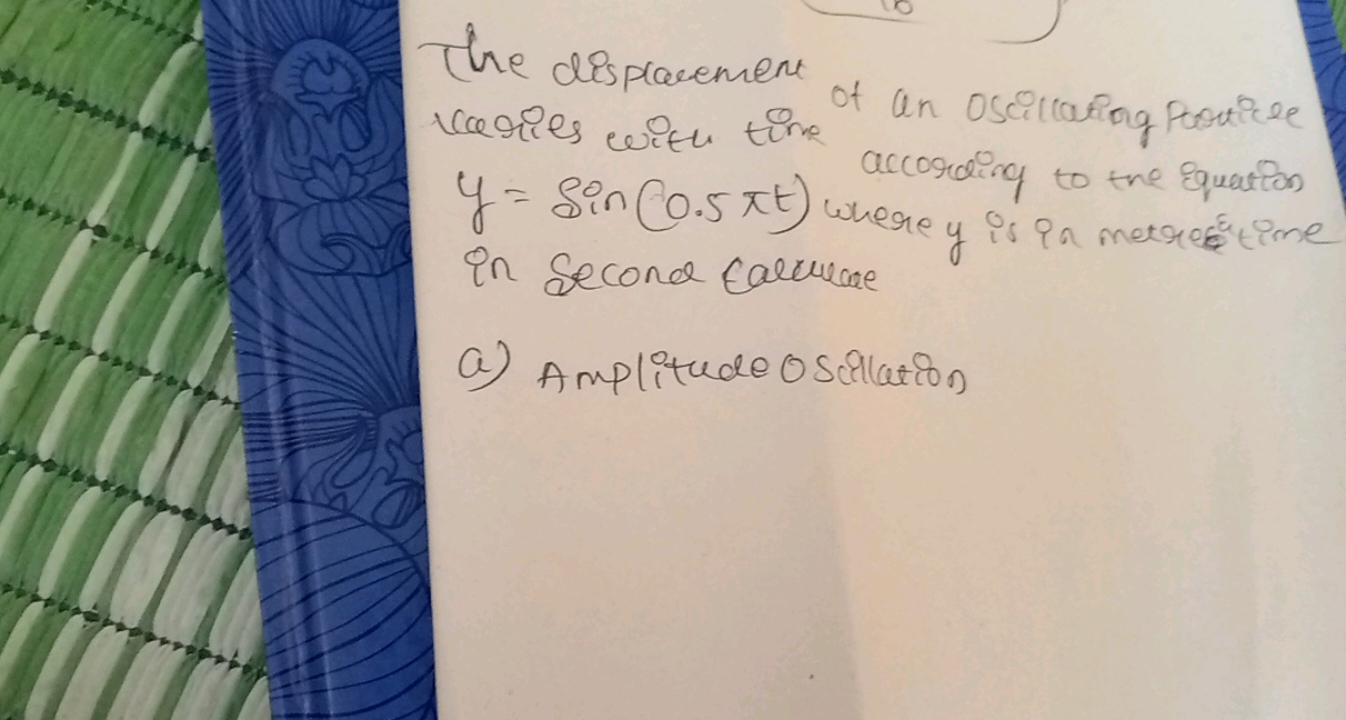 10
The displacement of an oscillating Particle
varies with time according to the Equation
y = Sin(0.5 πt) where y is in metres & time
in Second Calculate
a) Amplitude Oscillation